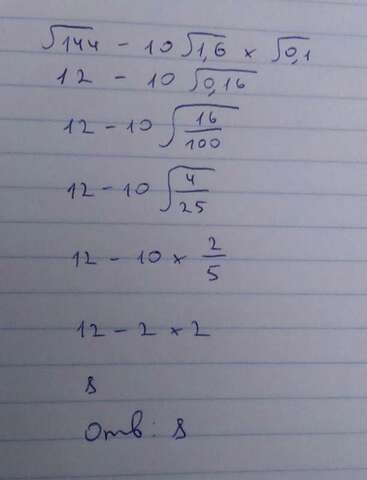 √144 - 10√1,6 × √0,1
12 - 10√0,16
12 - 10√16/100
12 - 10√4/25
12 - 10 × 2/5
12 - 2 × 2
8
Отв: 8